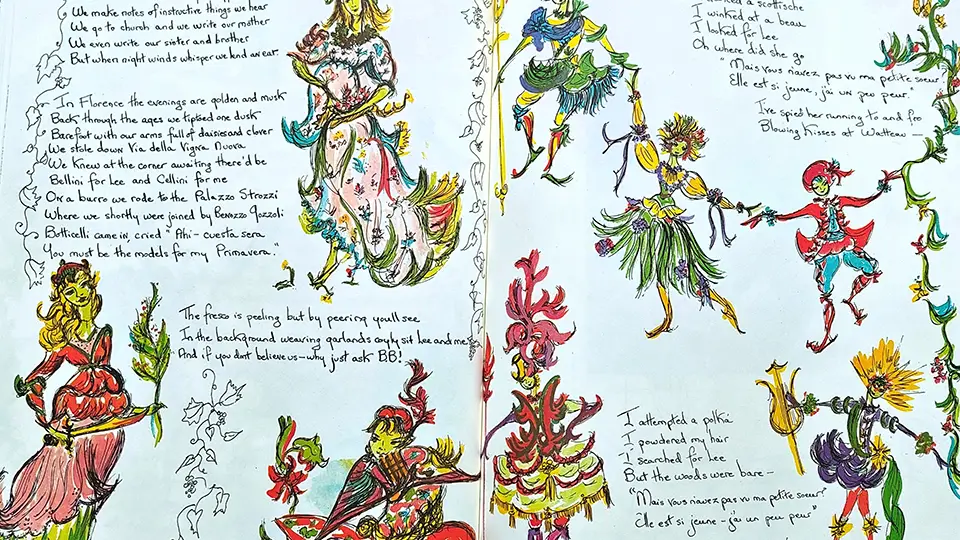 We make notes of instructive things we hear
We go to church and we write our mother
We even write our sister and brother
But when night winds whisper we lend an ear
In Florence the evenings are golden and musk
Back through the ages we tiptoed one dusk
Barefoot with our arms full of daisies and clover
We stole down Via della Vigna Nuova
We knew at the corner awaiting there'd be
Bellini for Lee and Cellini for me
On a burro we rode to the Palazzo Strozzi
Where we shortly were joined by Benozzo Gozzoli
Botticelli came in, cried "Ahi - cuesta sera
You must be the models for my Primavera."
The fresco is peeling but by peering you'll see
In the background weaving garlands sit Lee and me
And if you don't believe us - why just ask BB!
a scottische
I winked at a beau
I looked for Lee
Oh where did she go
"Mais vous n'avez pas vu ma petite soeur
Elle est si jeune, j'ai un peu peur."
I've spied her running to and fro
Blowing kisses at Watteau -
I attempted a polka
I powdered my hair
I searched for Lee
But the woods were bare -
"Mais vous n'avez pas vu ma petite soeur?
Elle est si jeune - j'ai un peu peur"